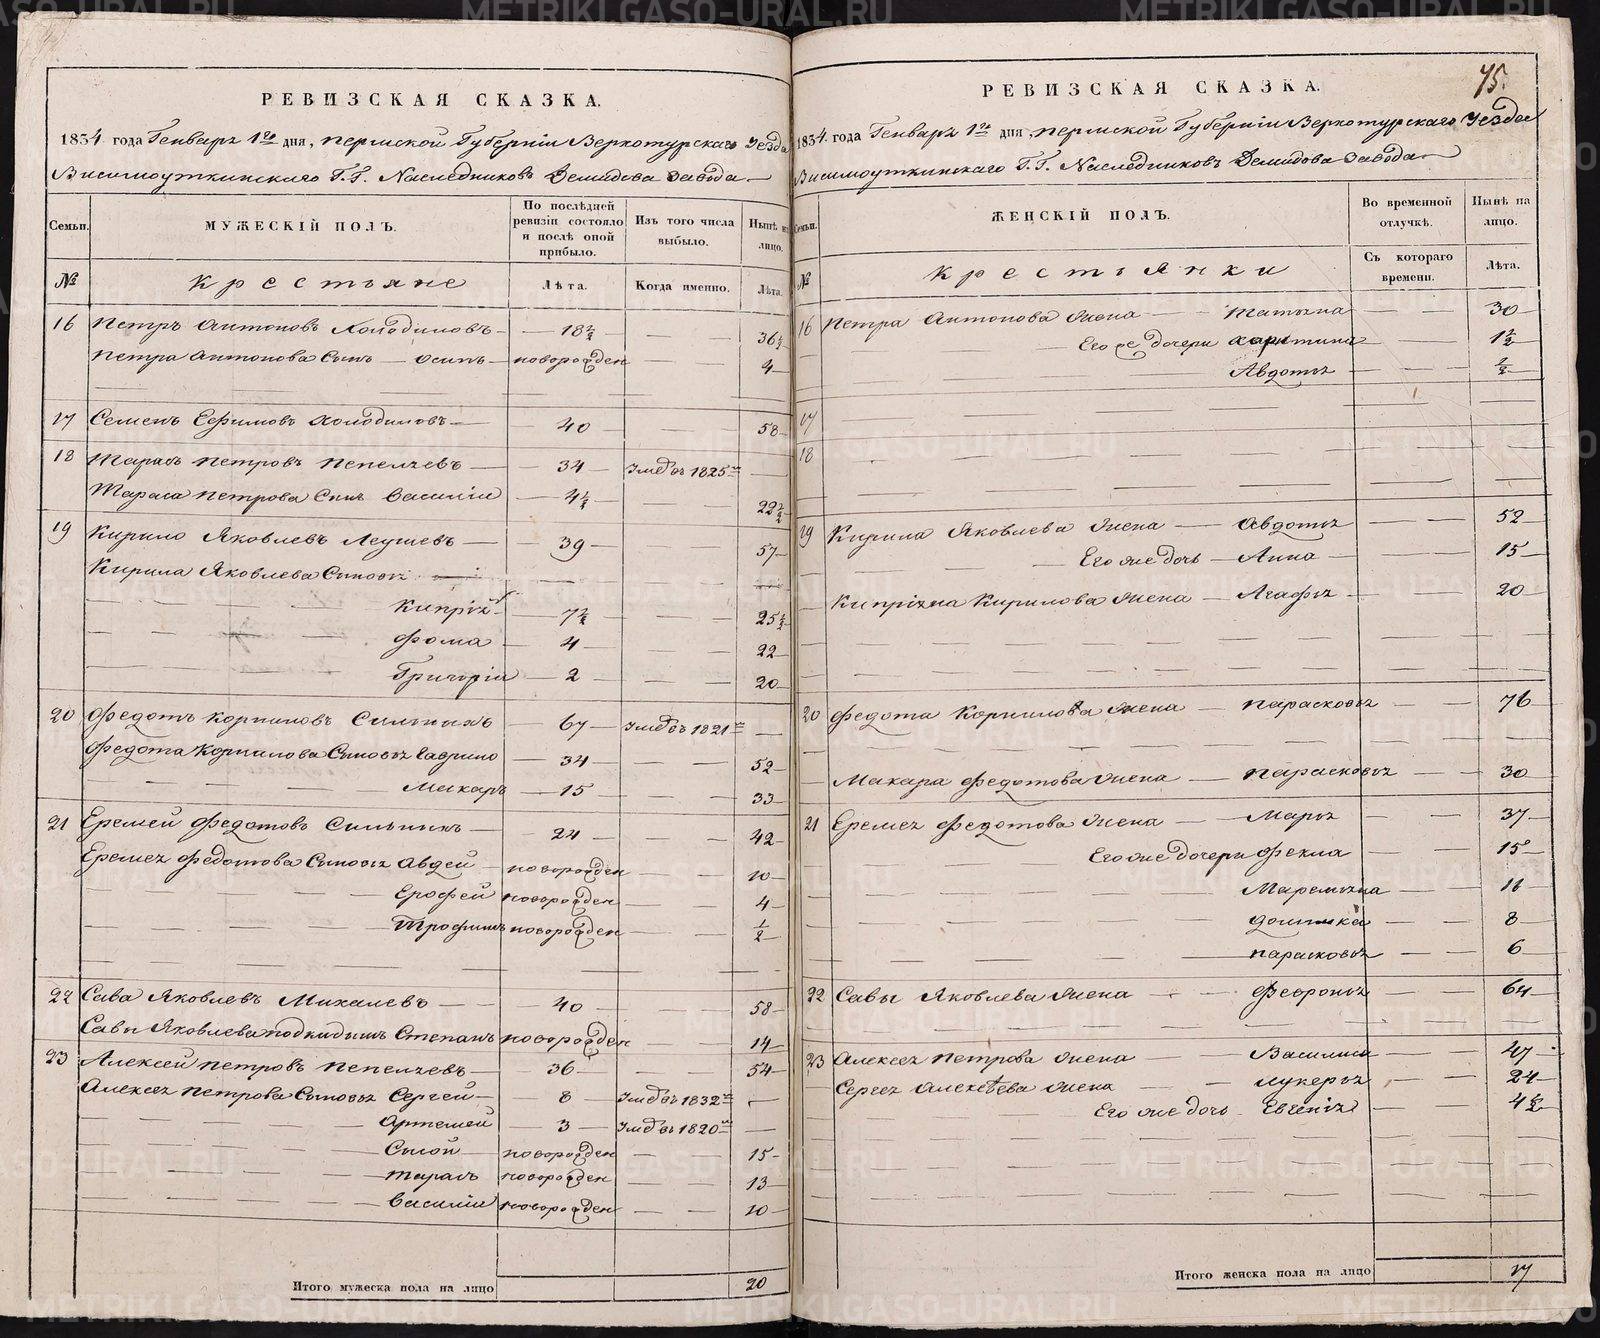 РЕВИЗСКАЯ СКАЗКА.
1834 года Генваря 1го дня, Пермской Губерніи Верхотурскаго Уезда
Висимоуткинскаго Г.Г. Наследниковъ Демидова Завода
Семьи.
МУЖЕСКІЙ ПОЛЪ.
По послѣдней ревизіи состояло и послѣ оной прибыло.
Изъ того числа выбыло.
Нынѣ на лицо.
№
Крестьяне
Лѣта.
Когда именно.
Лѣта.
16 Петръ Антоновъ Холодиловъ 18½ 36½
Петра Антонова Сынъ Осипъ новорожден 4
17 Семенъ Ефимовъ Холодиловъ 40 58
18 Тарасъ Петровъ Пепеляевъ 34 Умев 1825
Тараса Петрова Сынъ Василіи 4½ 22½
19 Кирило Яковлевъ Леушевъ 39 57
Кирила Яковлева Сыновья
Кипріян 7½ 25½
Фома 4 22
Григоріи 2 20
20 Федотъ Корниловъ Сильныхъ 67 Умев 1821
Федота Корнилова Сыновья Гаврило 34 52
Макаръ 15 33
21 Еремей Федотовъ Сильныхъ 24 42
Еремея Федотова Сыновья Авдей новорожден 10
Ерофей новорожден 4
Трофимъ новорожден ½
22 Сава Яковлевъ Михалевъ 40 58
Савы Яковлева подкидышъ Степанъ новорожден 14
23 Алексей Петровъ Пепеляевъ 36 54
Алексея Петрова Сыновья Сергей 8 Умев 1832
Артемей 3 Умев 1820
Сысой новорожден 15
Тарасъ новорожден 13
Василіи новорожден 10
Итого мужеска пола на лицо 20
75.
РЕВИЗСКАЯ СКАЗКА.
1834 года Генваря 1го дня, Пермской Губерніи Верхотурскаго Уезда
Висимоуткинскаго Г.Г. Наследниковъ Демидова Завода
Семьи.
ЖЕНСКІЙ ПОЛЪ.
Во временной отлучкѣ.
Нынѣ на лицо.
№
Крестьянки
Съ котораго времени.
Лѣта.
16 Петра Антонова Жена Татьяна 30
Его же дочери Харитина 1½
Авдотья ½
17
18
19 Кирила Яковлева Жена Авдотья 52
Его же дочь Анна 15
Кипріяна Кирилова Жена Агафья 20
20 Федота Корнилова Жена Парасковья 76
Макара Федотова Жена Парасковья 30
21 Еремея Федотова Жена Марья 37
Его же дочери Фекла 15
Маремьяна 11
Домника 8
Парасковья 6
22 Савы Яковлева Жена Февронья 64
23 Алексея Петрова Жена Василиса 47
Сергея Алексѣева Жена Лукерья 24
Его же дочь Евгенія 4½
Итого женска пола на лицо 17